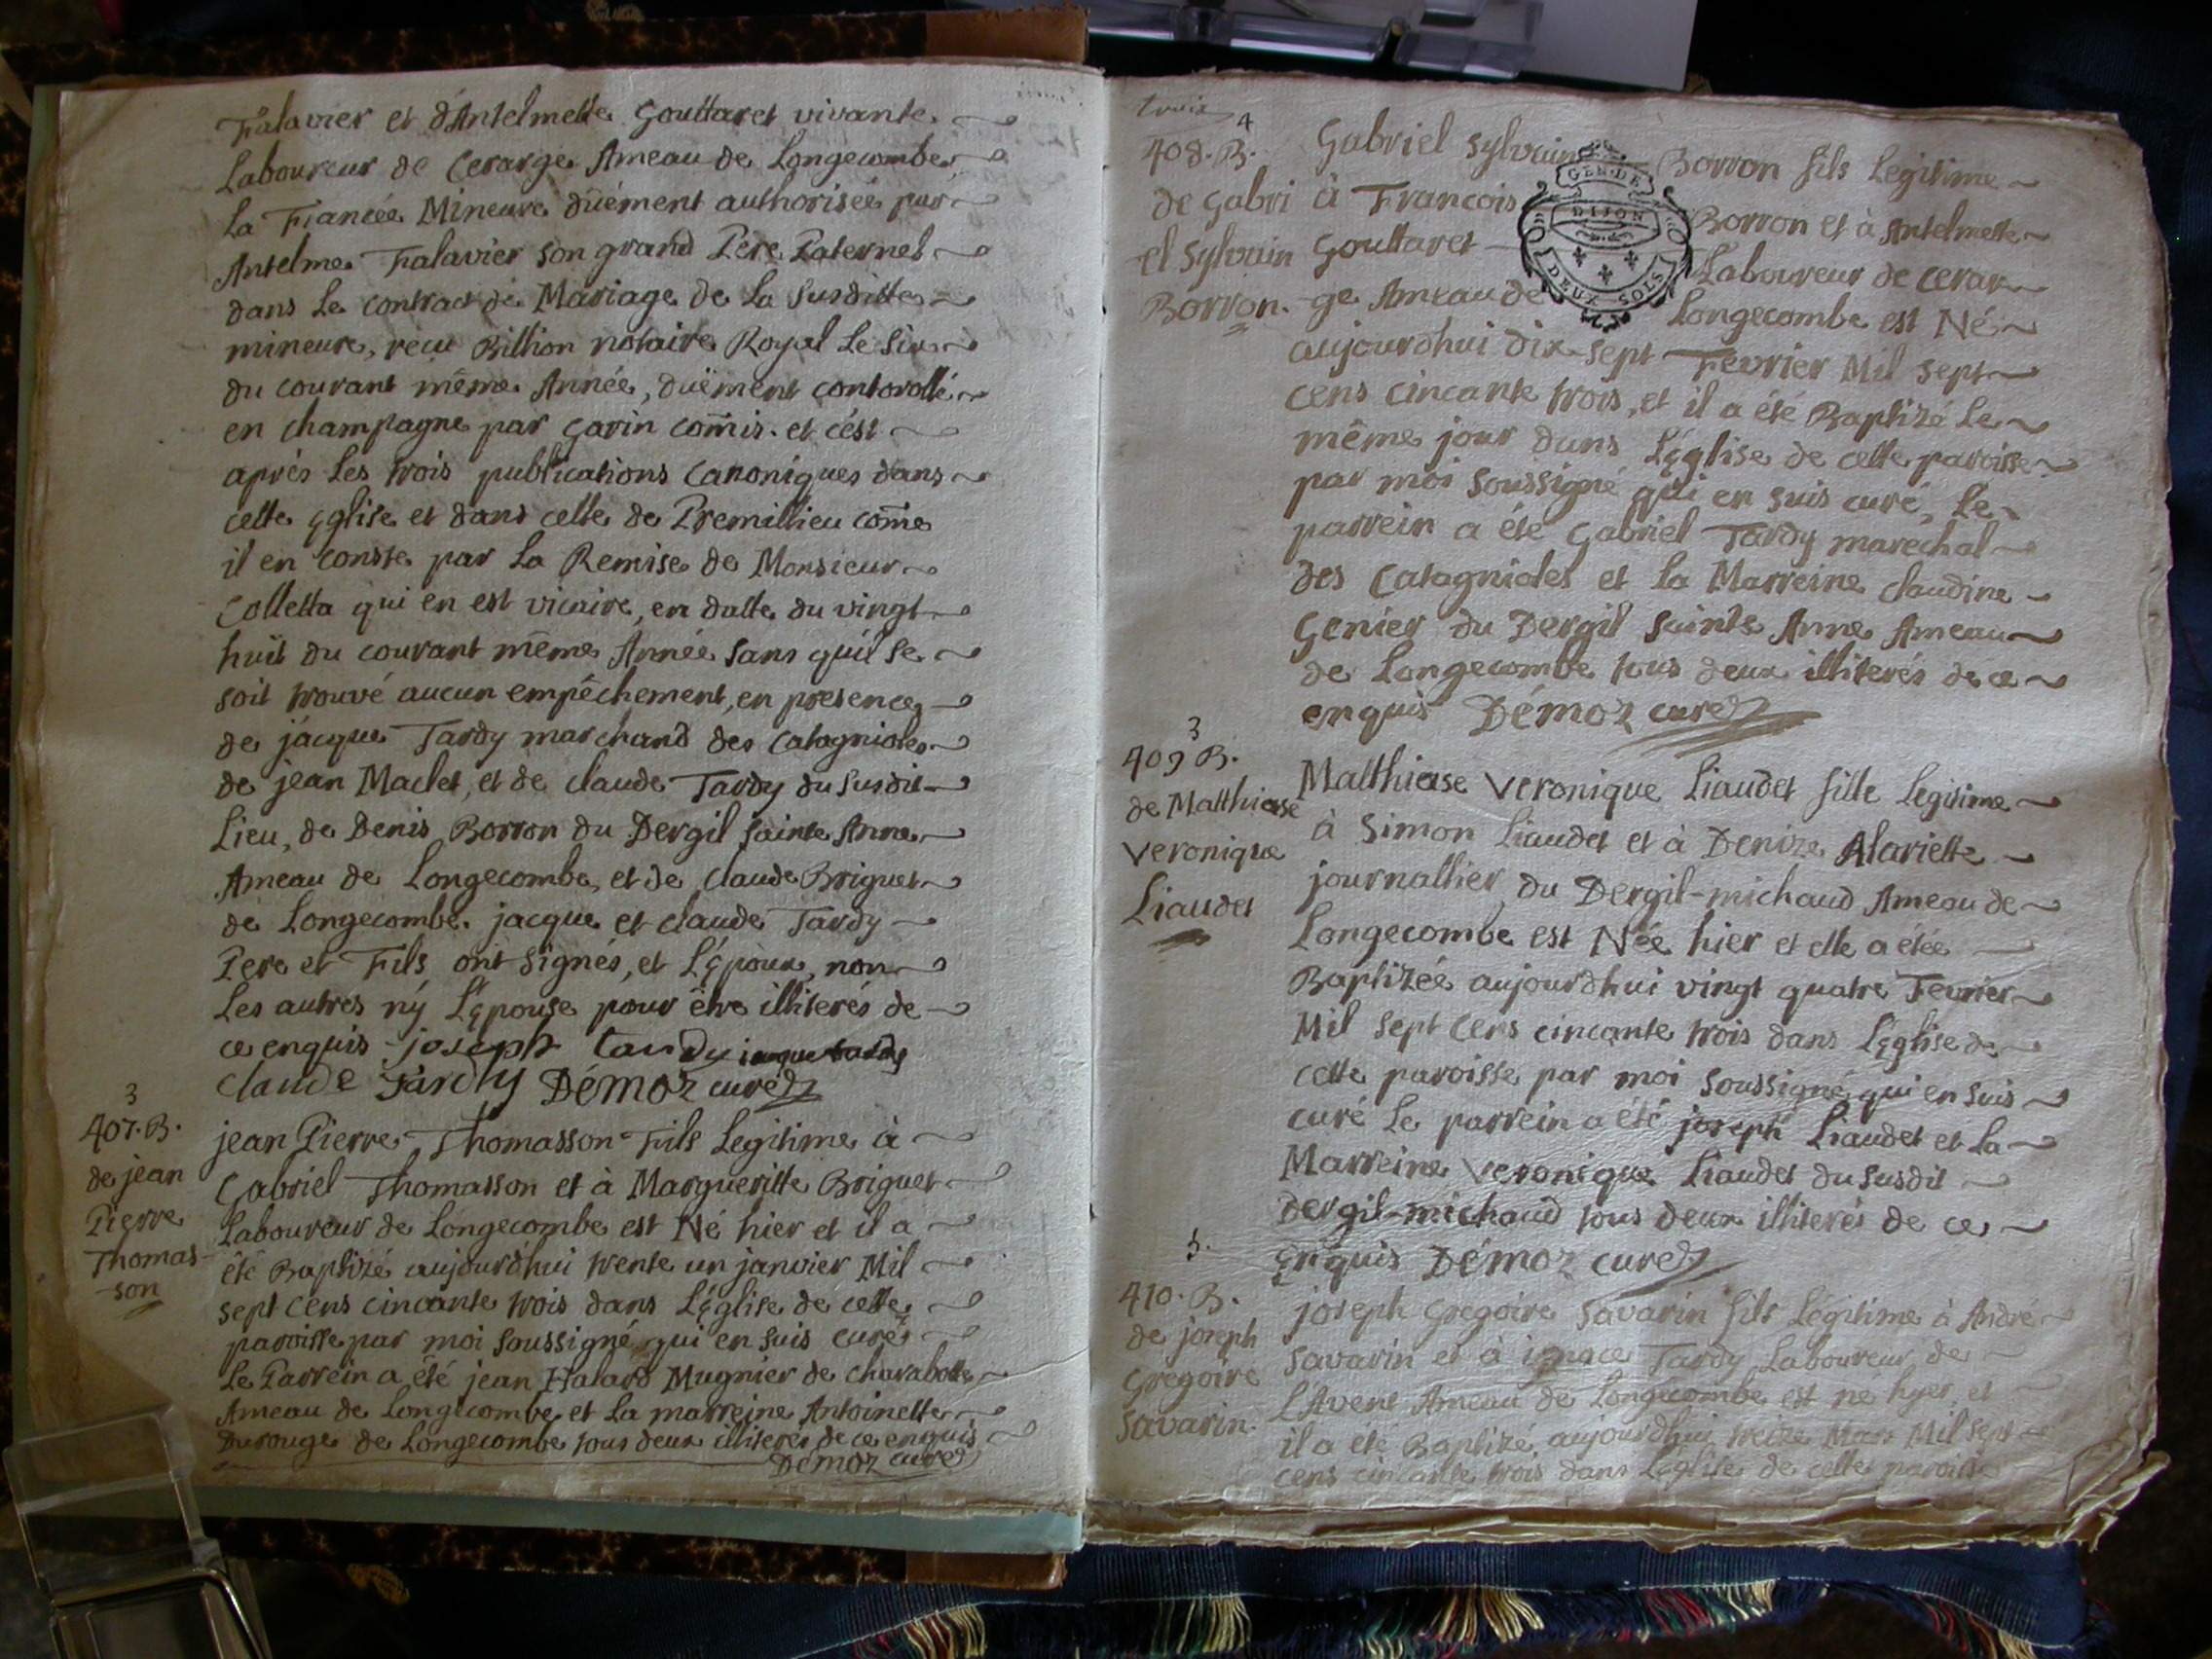 Falavier et d'Antelmette Gouttaret vivante
Laboureur de Cerarge Ameau de Longecombe
La Fiancée Mineure düement authorisée par
Antelme Falavier son grand Pere Paternel
dans Le contract de Mariage de La susditte
mineure, recu Billion notaire Royal Le six
du courant même Année, duëment controllé
en champagne par Garin com̄is. et c'ést
aprés Les trois publications Canoniques dans
cette Eglise et dans celle de Premillieu com̄e
il en conste par La Remise de Monsieur
Colletta qui en est vicaire, en datte du vingt
huit du courant même Année sans qu'il se
soit trouvé aucun empêchement, en presence
de jacque Tardy marchand des Catagnioles
de jean Maclet, et de claude Tardy du susdit
Lieu, de Denis Borron du Dergil sainte Anne
Ameau de Longecombe, et de claude Briguet
de Longecombe. jacque et claude Tardy
Pere et Fils ont signés, et L'Epoux, non
Les autres ny L'Epouse pour être illiterés de
ce enquis joseph tardy jaque tardy
claude Tardy Démoz curé
3
407. B.
de jean
Pierre
Thomas-
son
jean Pierre Thomasson Fils Legitime à
Gabriel Thomasson et à Margueritte Briguet
Laboureur de Longecombe est Né hier et il a
été Baptizé aujourd'hui trente un janvier Mil
sept cens cincante trois dans L'Eglise de cette
paroisse par moi soussigné qui en suis curé
Le Parrein a été jean Halard Mugnier de charabotte
Ameau de Longecombe et La marreine Antoinette
Durouge de Longecombe tous deux illiterés de ce enquis
Démoz curé
trois
4
408. B.
de Gabri
el Sylvain
Borron.
Gabriel Sylvain Borron fils Legitime
à Francois Borron et à Antelmette
Gouttaret Laboureur de cerar
ge Ameau de Longecombe est Né
GEN. DE
DIJON
DEUX SOLS
aujourdhui dix sept Fevrier Mil sept
cens cincante trois, et il a été Baptizé Le
même jour dans L'Eglise de cette paroisse
par moi soussigné qui en suis curé, Le
parrein a éte Gabriel Tardy marechal
des Catagnioles et La Marreine claudine
Genier du Dergil sainte Anne Ameau
de Longecombe tous deux illiterés de ce
enquis Démoz curé
3
409 B.
de Matthiase
Veronique
Liaudet
Matthiase Veronique Liaudet fille Legitime
à Simon Liaudet et à Denize Alariette
journallier du Dergil-michaud Ameau de
Longecombe est Née hier et elle a étée
Baptizée aujourdhui vingt quatre Fevrier
Mil sept cens cincante trois dans L'Eglise de
cette paroisse par moi soussigné qui en suis
curé Le parrein a été joseph Liaudet et La
Marreine Veronique Liaudet du susdit
Dergil-michaud tous deux illiterés de ce
Enquis Démoz curé
5.
410. B.
de joseph
Gregoire
Savarin.
joseph Gregoire Savarin fils Légitime à André
Savarin et à ignace Tardy Laboureur de
L'Avent Ameau de Longecombe est né hyer et
il a été Baptizé aujourdhui treize Mars Mil sept
cens cincante trois dans L'Eglise de cette paroisse